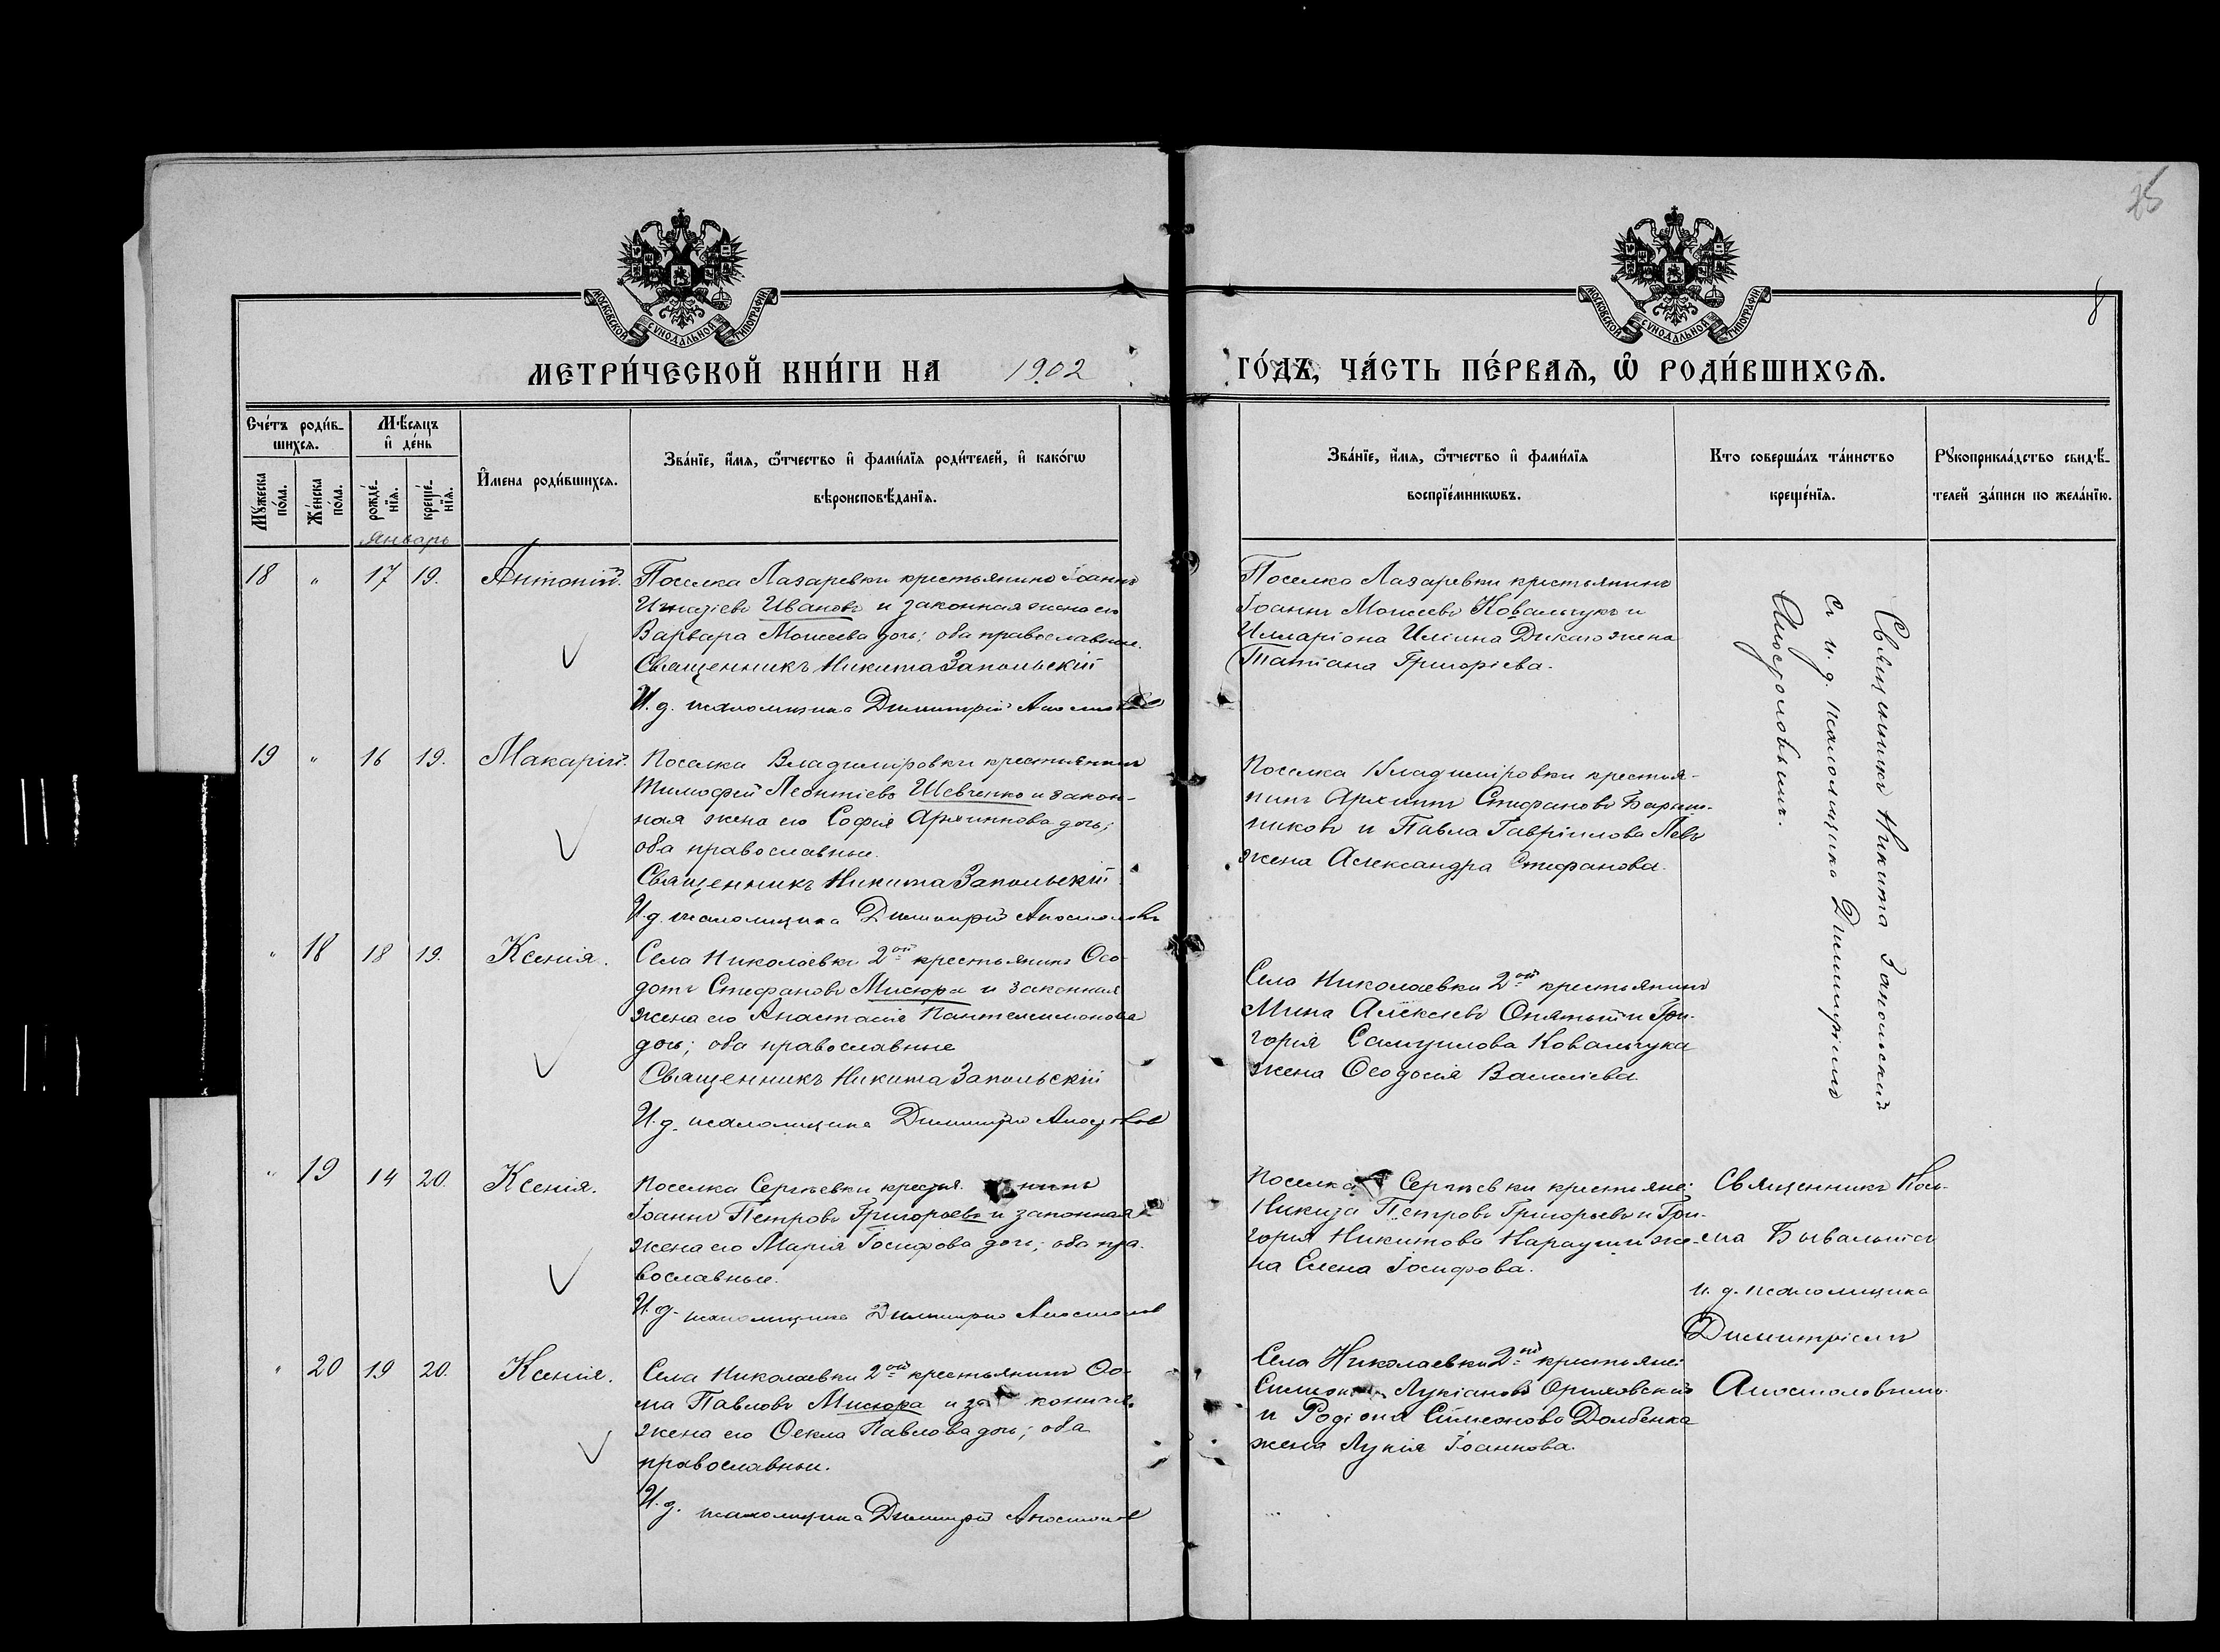 25
8
МОСКОВСКОЙ СѴНОДАЛЬНОЙ ТИПОГРАФІИ
МОСКОВСКОЙ СѴНОДАЛЬНОЙ ТИПОГРАФІИ
МЕТРИ́ЧЕСКОЙ КНИ́ГИ НА 1902
ГО́ДЪ, ЧА́СТЬ ПЕ́РВАѦ, Ѡ҆ РОДИ́ВШИХСѦ.
Сче́тъ роди́в-
шихсѧ.
Мꙋ́жеска по́ла.
Же́нска по́ла.
Мѣ́сѧцъ
и҆ де́нь
рожде́-
нїѧ.
креще́-
нїѧ.
Январь
И҆мена роди́вшихсѧ.
Зва́нїе, и҆́мѧ, ѻ҆́тчество и҆ фами́лїѧ роди́телей, и҆ како́гѡ
вѣроисповѣ́данїѧ.
Зва́нїе, и҆́мѧ, ѻ҆́тчество и҆ фами́лїѧ
воспрїе́мникѡвъ.
Кто соверша́лъ та́инство
креще́нїѧ.
Рꙋкоприкла́дство свидѣ́-
телей за́писи по жела́нїю.
18 " 17 19. Антоній.
Поселка Лазаревки крестьянинъ Іоаннъ
Игнатіевъ Ивановъ и законная жена его
Варвара Моисеева дочь; оба православные.
Священникъ Никита Запольскій
И. д. псаломщика Димитрій Апостоловъ
Поселка Лазаревки крестьянинъ
Іоаннъ Моисеевъ Ковальчукъ и
Илларіона Иліина Дикаго жена
Татіана Григоріева.
Священникъ Никита Запольскій
съ и. д. псаломщика Димитріемъ
Апостоловымъ.
19 " 16 19. Макарій.
Поселка Владиміровки крестьянинъ
Тимофей Леонтіевъ Шевченко и закон-
ная жена его Софія Архиппова дочь;
оба православные.
Священникъ Никита Запольскій
И. д. псаломщика Димитрій Апостоловъ
Поселка Владиміровки крестья-
нинъ Архиппъ Стефановъ Барат-
никовъ и Павла Гавріилова Левъ
жена Александра Стефанова.
" 18 18 19. Ксенія.
Села Николаевки 2ой крестьянинъ Ѳео-
дотъ Стефановъ Мисюра и законная
жена его Анастасія Пантелеимонова
дочь; оба православные
Священникъ Никита Запольскій
И. д. псаломщика Димитрій Апостоловъ
Села Николаевки 2ой крестьянинъ
Мина Алексѣевъ Опятый и Гри-
горія Самуилова Ковальчука
жена Ѳеодосія Василіева.
" 19 14 20. Ксенія.
Поселка Сергѣевки крестья нинъ
Іоаннъ Петровъ Григорьевъ и законная
жена его Марія Іосифова дочь; оба пра-
вославные.
И. д. псаломщика Димитрій Апостоловъ
Поселка Сергѣевки крестьяне:
Никита Петровъ Григорьевъ и Гри-
горія Никитова Нараути же-
на Елена Іосифова.
Священникъ Кось-
ма
и. д. псаломщика
Димитріемъ
Апостоловымъ.
" 20 19 20. Ксенія.
Села Николаевки 2ой крестьянинъ Ѳо-
ма Павловъ Мисюра и за конная
жена его Ѳекла Павлова дочь; оба
православные.
И. д. псаломщика Димитрій Апостоловъ
Села Николаевки 2ой крестьяне:
Симеонъ Лукіановъ Ориховскій
и Родіона Симеонова Долбенка
жена Лукія Іоаннова.